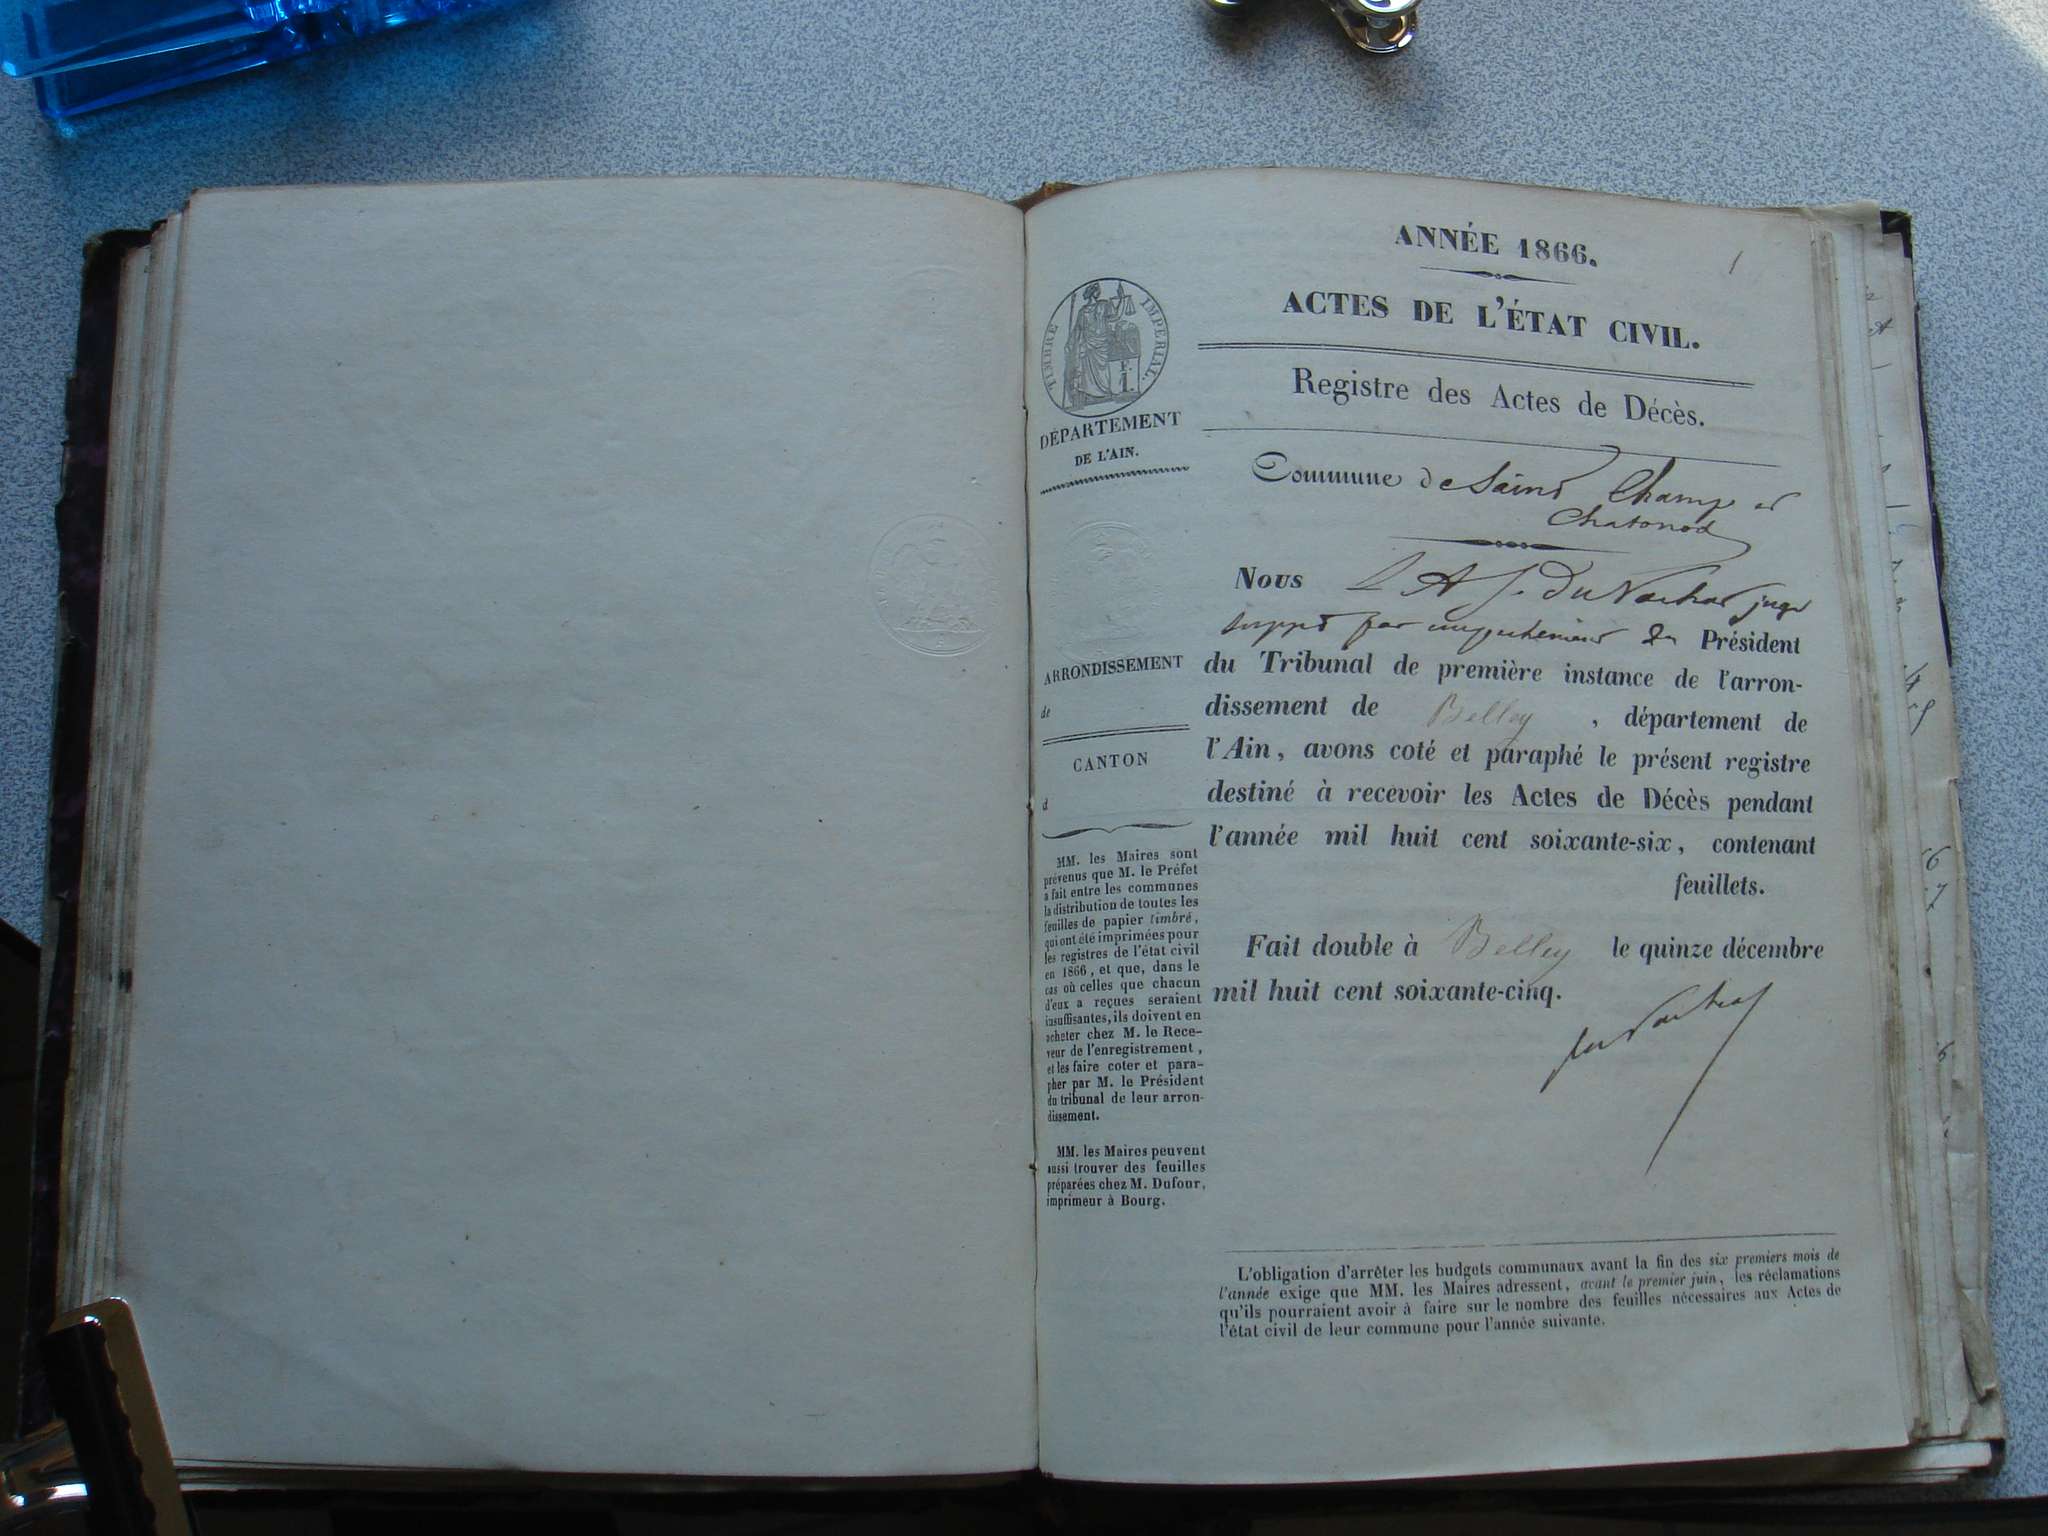 ANNÉE 1866.
1
ACTES DE L'ÉTAT CIVIL.
Registre des Actes de Décès.
Commune de Saint Champ et
Chatonod
Nous juge
supp^t par empechement du Président
du Tribunal de première instance de l'arron-
dissement de Belley , département de
l'Ain, avons coté et paraphé le présent registre
destiné à recevoir les Actes de Décès pendant
l'année mil huit cent soixante-six, contenant
feuillets.
Fait double à Belley le quinze décembre
mil huit cent soixante-cinq.
L'obligation d'arrêter les budgets communaux avant la fin des six premiers mois de
l'année exige que MM. les Maires adressent, avant le premier juin, les réclamations
qu'ils pourraient avoir à faire sur le nombre des feuilles nécessaires aux Actes de
l'état civil de leur commune pour l'année suivante.
TIMBRE IMPÉRIAL.
1
DÉPARTEMENT
DE L'AIN.
ARRONDISSEMENT
de
CANTON
d
MM. les Maires sont
prévenus que M. le Préfet
a fait entre les communes
la distribution de toutes les
feuilles de papier timbré,
qui ont été imprimées pour
les registres de l'état civil
en 1866, et que, dans le
cas où celles que chacun
d'eux a reçues seraient
insuffisantes, ils doivent en
acheter chez M. le Rece-
veur de l'enregistrement,
et les faire coter et para-
pher par M. le Président
du tribunal de leur arron-
dissement.
MM. les Maires peuvent
aussi trouver des feuilles
préparées chez M. Dufour,
imprimeur à Bourg.